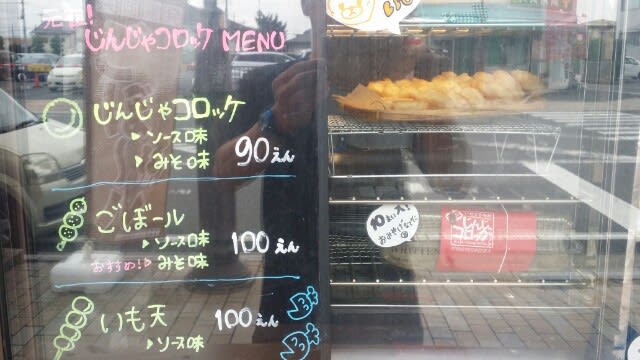 元祖!
じんじゃコロッケ MENU
じんじゃコロッケ
▶ソース味
▶みそ味
90えん
ごぼール
▶ソース味
おすすめ!▶みそ味
100えん
いも天
▶ソース味
100えん
10コ入!
おみやげに